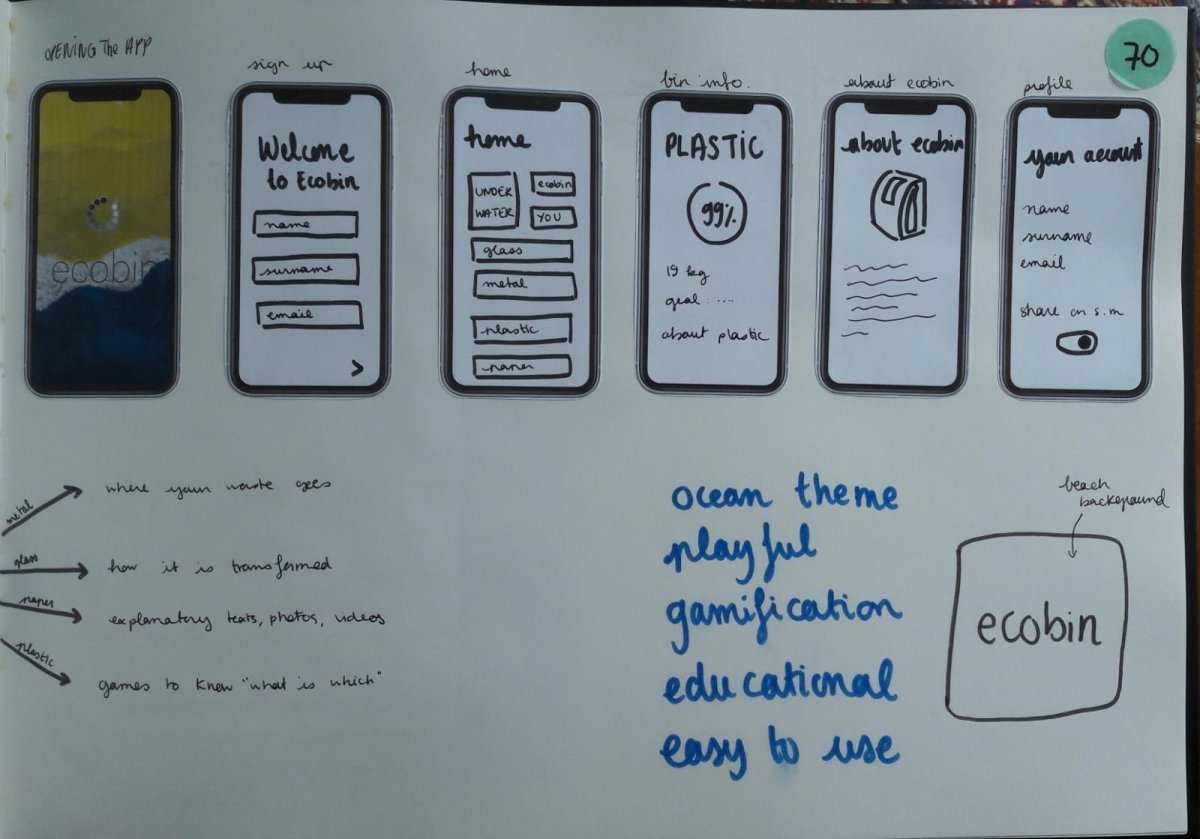 OPENING The APP
ecobin
sign up
Welcome
to Ecobin
name
surname
email
>
home
home
UNDER
WATER
ecobin
YOU
glass
metal
plastic
paper
bin info.
PLASTIC
99%
19 kg
goal ....
about plastic
about ecobin
about ecobin
profile
your account
name
surname
email
share on s.m
70
metal
where your waste goes
glass
how it is transformed
paper
explanatory texts, photos, videos
plastic
games to know "what is which"
ocean theme
playful
gamification
educational
easy to use
beach
background
ecobin